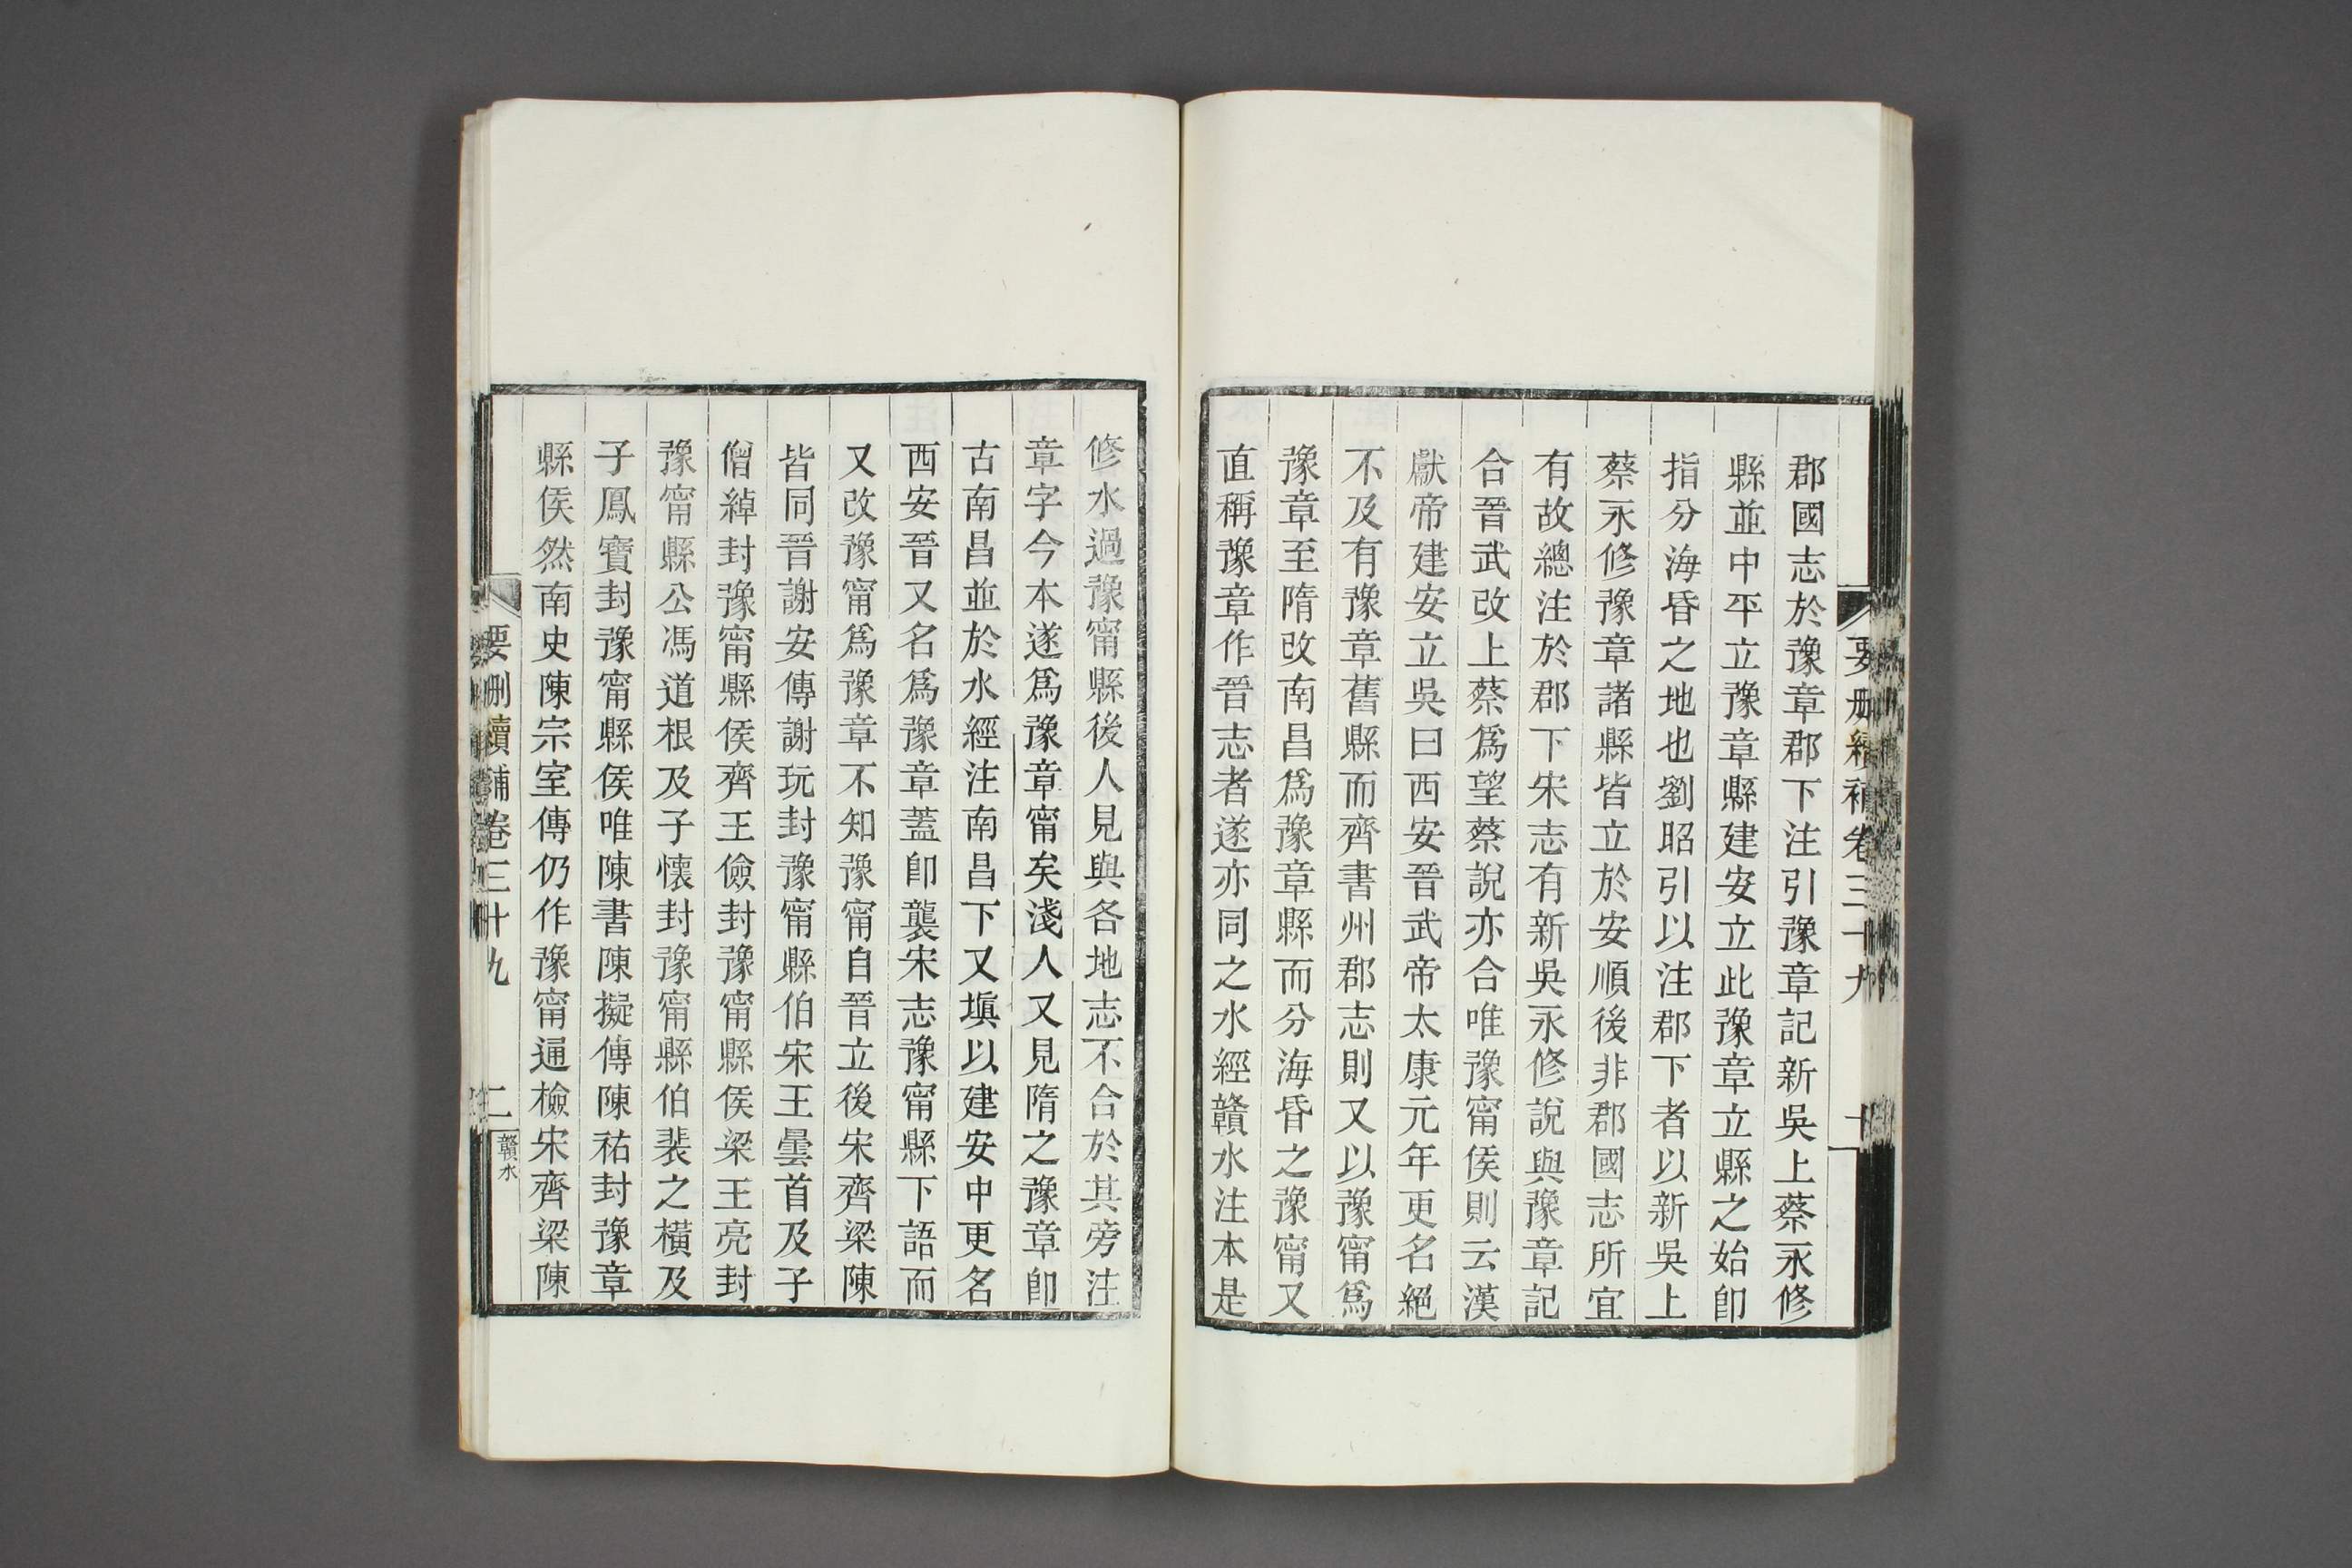 郡國志於豫章郡下注引豫章記新吳上蔡永修
縣並中平立豫章縣建安立此豫章立縣之始卽
指分海昏之地也劉昭引以注郡下者以新吳上
蔡永修豫章諸縣皆立於安順後非郡國志所宜
有故總注於郡下宋志有新吳永修說與豫章記
合晉武改上蔡爲望蔡說亦合唯豫甯侯則云漢
獻帝建安立吳曰西安晉武帝太康元年更名絕
不及有豫章舊縣而齊書州郡志則又以豫甯爲
豫章至隋改南昌爲豫章縣而分海昏之豫甯又
直稱豫章作晉志者遂亦同之水經贛水注本是
修水過豫甯縣後人見與各地志不合於其旁注
章字今本遂爲豫章甯矣淺人又見隋之豫章卽
古南昌並於水經注南昌下又塡以建安中更名
西安晉又名爲豫章蓋卽襲宋志豫甯縣下語而
又改豫甯爲豫章不知豫甯自晉立後宋齊梁陳
皆同晉謝安傳謝玩封豫甯縣伯宋王曇首及子
僧綽封豫甯縣侯齊王儉封豫甯縣侯梁王亮封
豫甯縣公馮道根及子懷封豫甯縣伯裴之橫及
子鳳寶封豫甯縣侯唯陳書陳擬傳陳祐封豫章
縣侯然南史陳宗室傳仍作豫甯通檢宋齊梁陳
要刪續補卷三十九
二
贛水